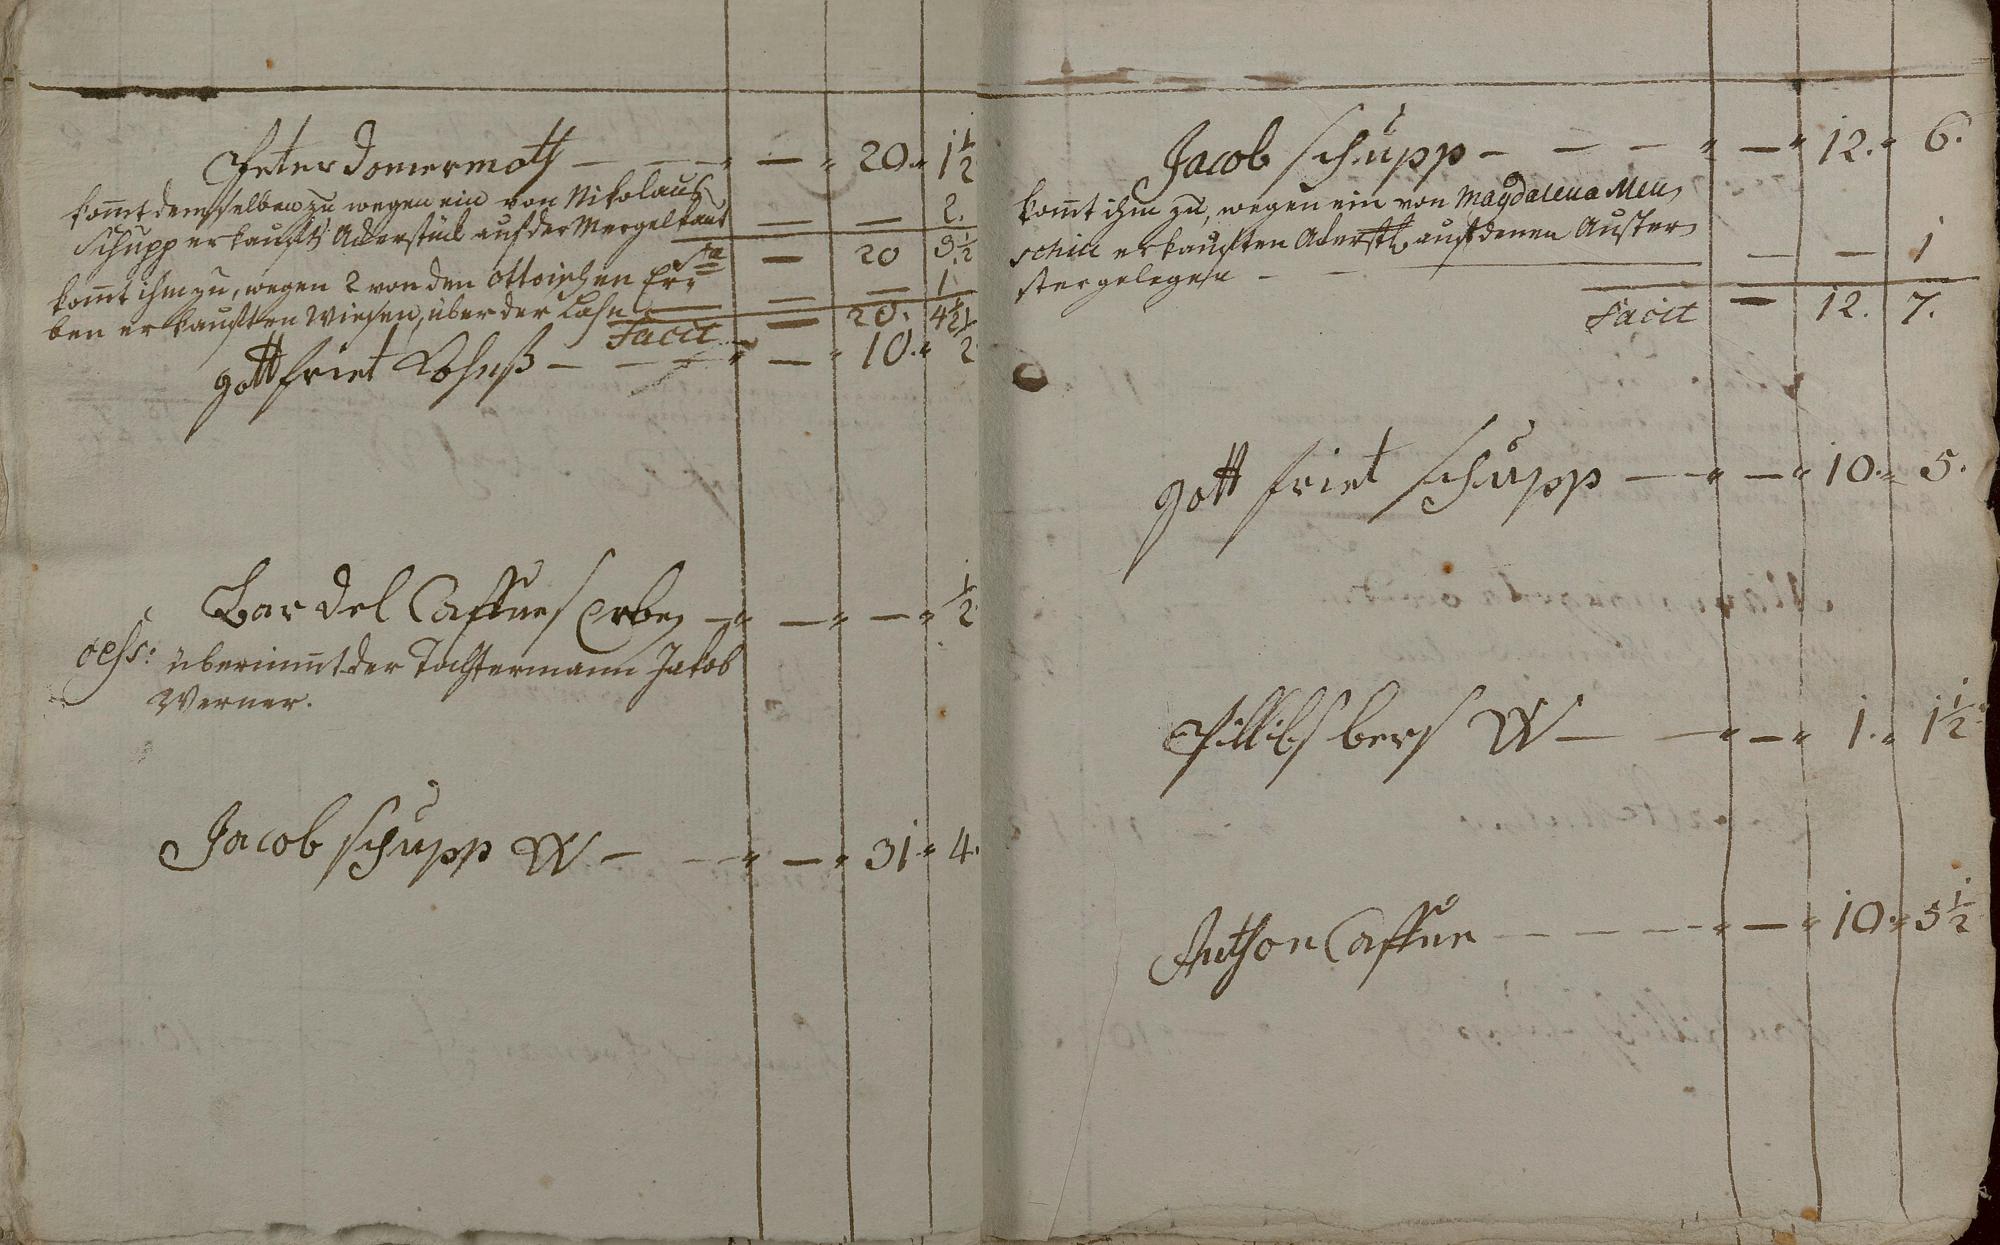 Peter Domermoth — — — " — " 20." 1½
kom̄t demselben zu wegen ein von Nikolaus
Schupp erkauft Ackerstück auf der Mergelkaut — — 2.
Sa — 20 3.½
kom̄t ihm zu, wegen 2 von den Ottoischen Er-
ben erkauften Wiesen, über der Lahn — — 1
Facit — 20. 4½
gottfriet — — — " — " 10." ½
Bardel Caffner Erben — " — " — " ½
übernim̄t der Tochtermann Jakob
Werner.
Jacob Schupp W — — " — " 31" 4.
Jacob Schupp — — — — " — " 12." 6.
kom̄t ihm zu, wegen ein von Magdalena Men
schin erkauften Ackerst. auf denen Auster
ster gelegen — — — — 1
Facit — 12. 7.
gott friet Schupp — — " — " 10." 5.
Pillibs W — — " — " 1." 1½
Anthon Caffner — — — — " — " 10." 5½